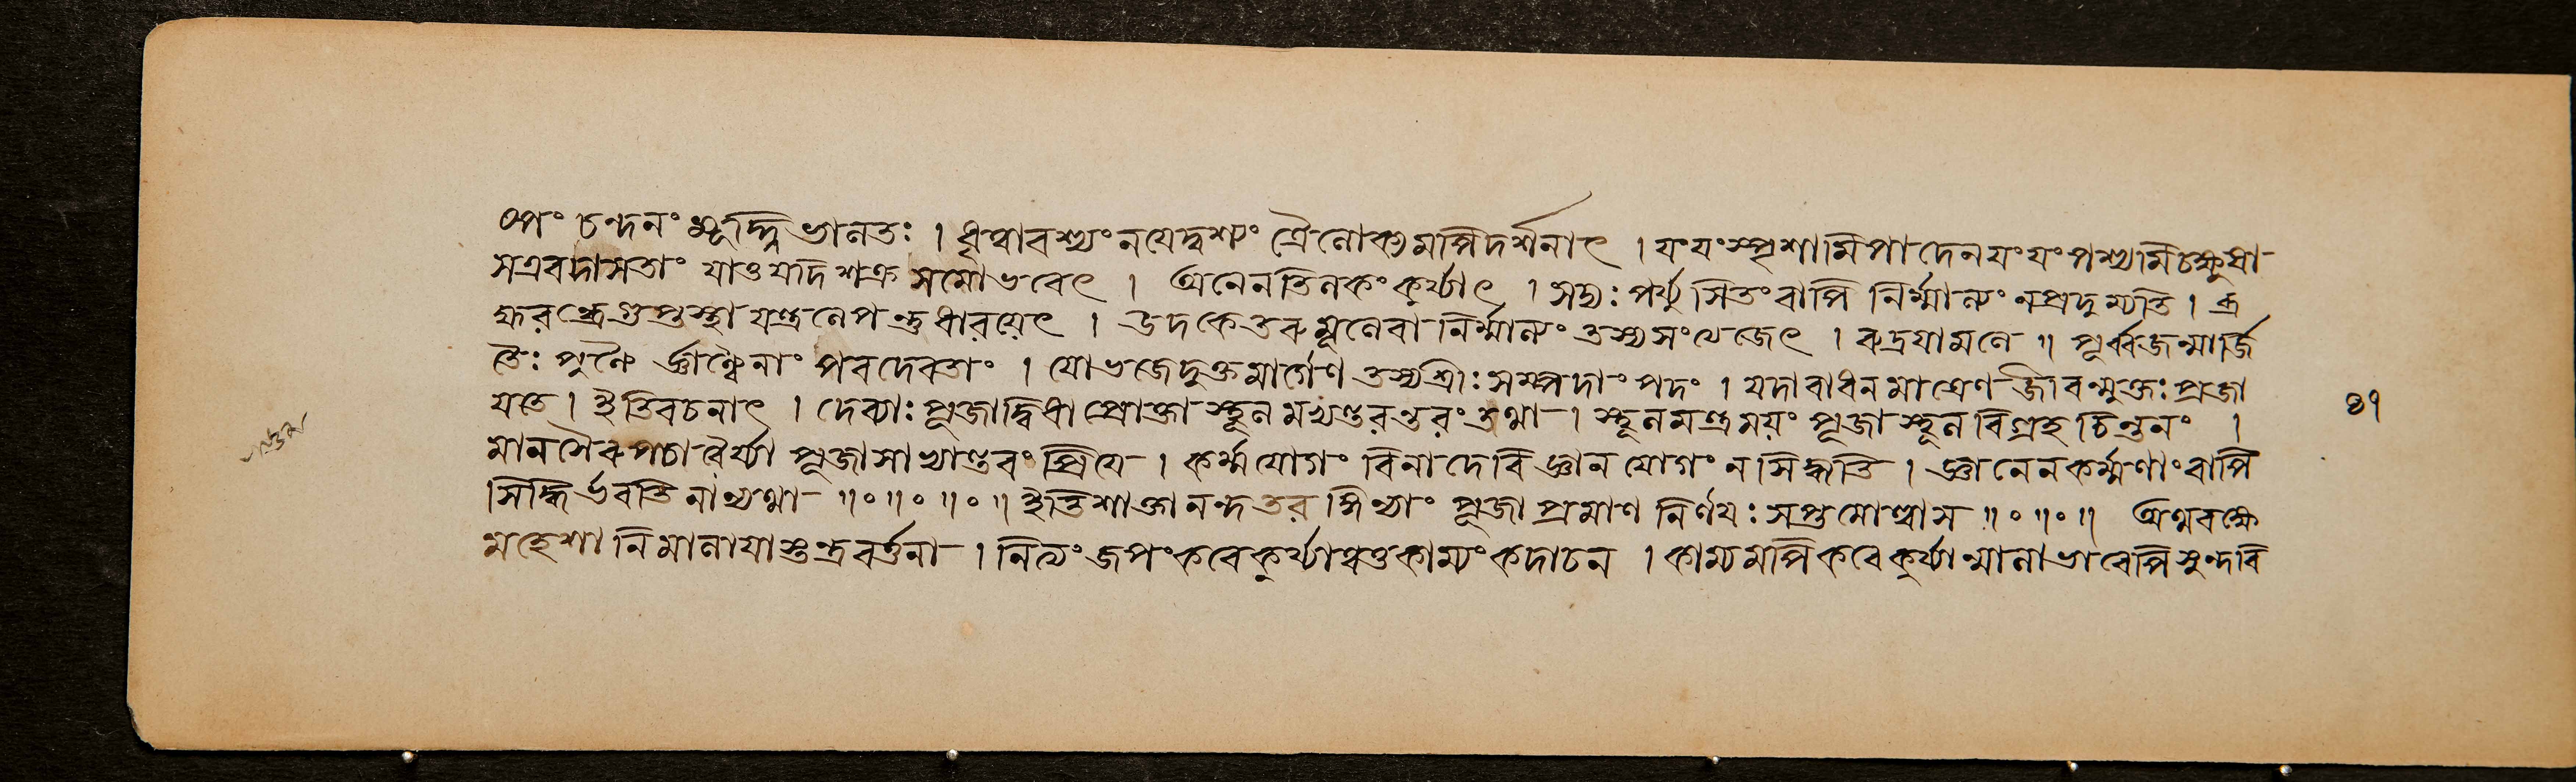 ষ্পং চন্দনং মূর্দ্ধ্নি ভালতঃ । ধৃত্বাবশ্যং নয়েদ্বশ্যং ত্রৈলোক্যমপিদর্শনাৎ । যং যং স্পৃশামিপাদেন যং যং পশ্যামিচক্ষুষা
সএবদাসতাং যাতু যদি শক্র সমোভবেৎ । অনেনতিলকং কুর্য্যাৎ । সদ্যঃ পর্য্যুসিতং বাপি নির্ম্মাল্যং নপ্রদুষ্যতি । ব্র
হ্মরন্ধ্রেগুপ্তস্থা যন্ত্রলেপন্তু ধারয়েৎ । উদকেতরুমূলেবা নির্ম্মাল্যং তস্যসংত্যেজেৎ । রুদ্রযামলে ॥ পূর্ব্বজন্মার্জি
তৈঃ পুণ্যৈ র্জ্ঞাত্বৈনাং পরদেবতাং । যোভজেদুক্তমার্গেণ তস্যশ্রীঃ সম্পদাং পদং । যদারাধনমাত্রেণ জীবন্মুক্তঃ প্রজা
যতে । ইতিবচনাৎ । দেব্যাঃ পূজাদ্বিধা প্রোক্তা স্থূলমখণ্ডরন্তরং তথা । স্থূলমন্ত্রময়ং পূজা স্থূল বিগ্রহ চিন্তনং ।
মানসৈরুপচারৈর্য্যা পূজাসা খ্যান্তরং প্রিয়ে । কর্ম্মযোগং বিনাদেবি জ্ঞানযোগং ন সিদ্ধ্যতি । জ্ঞানেনকর্ম্মণাং বাপি
সিদ্ধির্ভবতি নান্যথা ॥০॥০॥০॥ ইতিশাক্তানন্দতরঙ্গিণ্যাং পূজা প্রমাণ নির্ণয়ঃ সপ্তমোল্লাস ॥০॥০॥ অথবক্ষে
মহেশানি মালায়াশ্চন্দ্রবর্ত্তনা । নিত্যং জপং করে কুর্য্যান্নতুকাম্যং কদাচন । কাম্যমপিকরে কুর্য্যান্মালাভাবেপি সুন্দরি
৪১